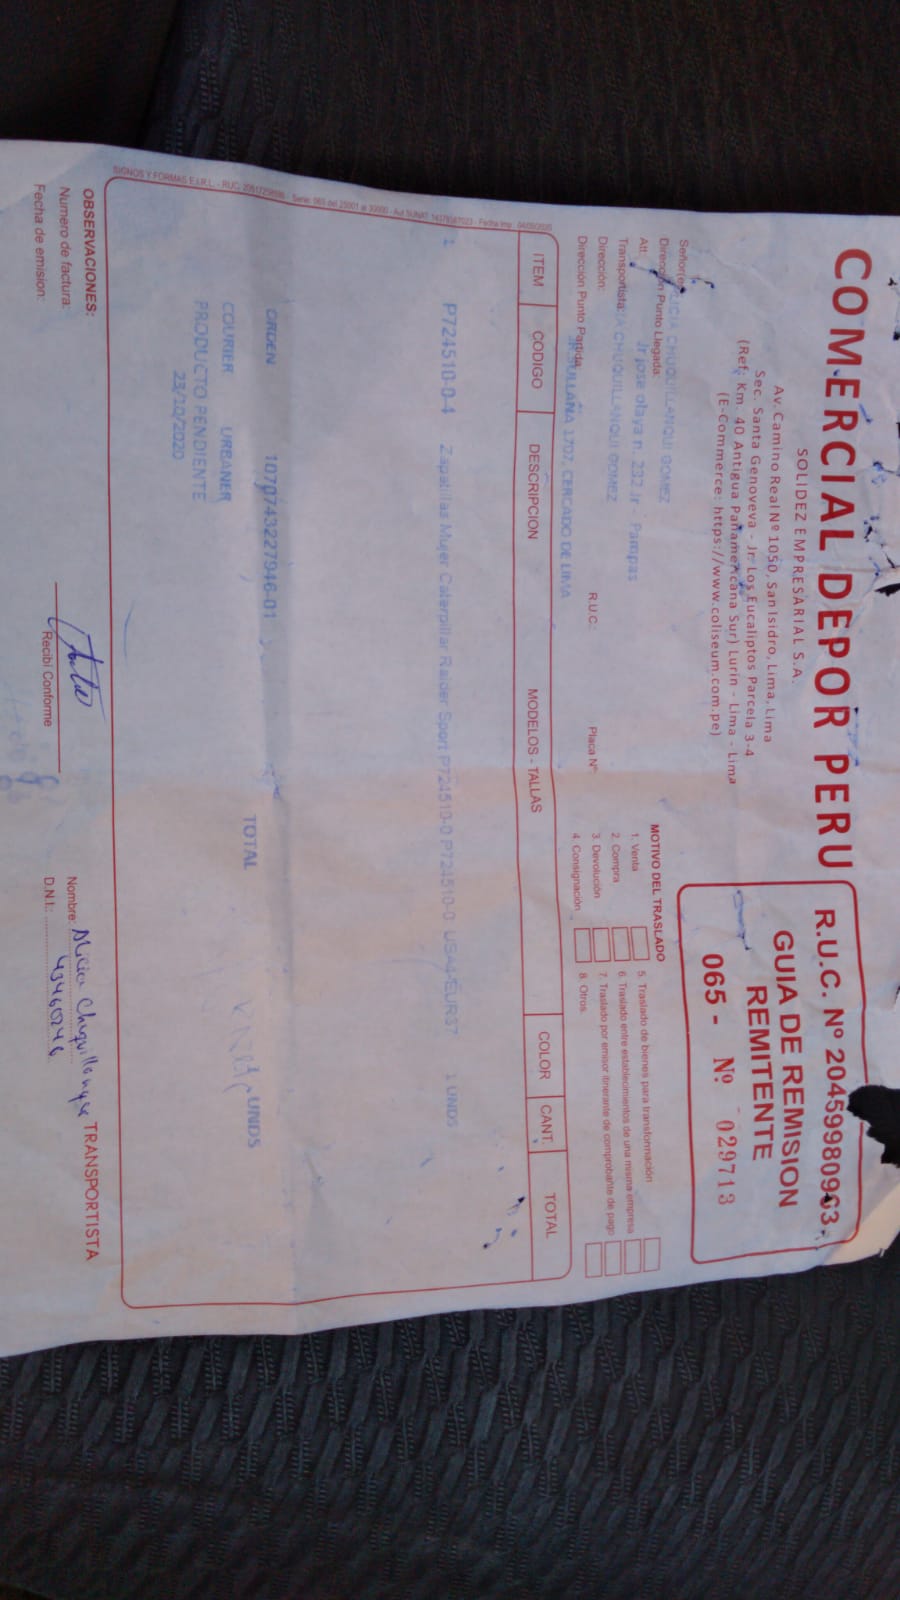 COMERCIAL DEPOR PERU
SOLIDEZ EMPRESARIAL S.A.
Av. Camino Real Nº 1050, San Isidro, Lima, Lima
Sec. Santa Genoveva - Jr. Los Eucaliptos Parcela 3-4
(Ref: Km. 40 Antigua Panamericana Sur) Lurin - Lima - Lima
(E-Commerce: https://www.coliseum.com.pe)
R.U.C. Nº 20459980963
GUIA DE REMISION
REMITENTE
065 - Nº 029713
Señor(es): LICIA CHUQUILLANQUI GOMEZ
Dirección Punto Llegada:
Att. Jr jose olaya n. 212 Jr - Pampas
Transportista: IA CHUQUILLANQUI GOMEZ
Dirección: R.U.C.: Placa Nº:
Dirección Punto Partida: JR SULLANA 1707, CERCADO DE LIMA
MOTIVO DEL TRASLADO
1. Venta
2. Compra
3. Devolución
4. Consignación
5. Traslado de bienes para transformación
6. Traslado entre establecimientos de una misma empresa
7. Traslado por emisor itinerante de comprobante de pago
8. Otros
ITEM CODIGO DESCRIPCION MODELOS - TALLAS COLOR CANT. TOTAL
1 P724510-0-4 Zapatillas Mujer Caterpillar Raider Sport P724510-0 P724510-0 1 UNDS
ORDEN 1070743227946-01
TOTAL UNDS
COURIER URBANER
PRODUCTO PENDIENTE
23/10/2020
SIGNOS Y FORMAS E.I.R.L. - RUC. - Serie: 065 del 25001 al 30000 - Aut SUNAT: - Fecha Imp.:
OBSERVACIONES:
Numero de factura:
Fecha de emision:
Recibí Conforme
TRANSPORTISTA
Nombre: Alicia Chuquillanqui
D.N.I.: 43460246